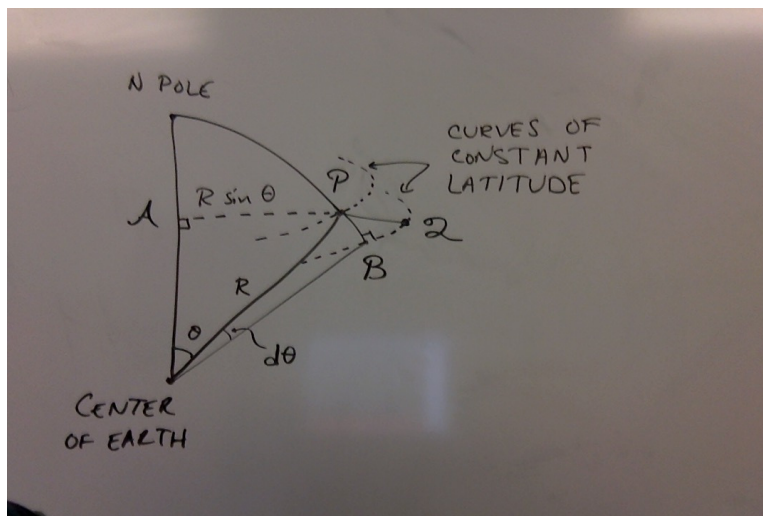 N POLE
CURVES OF
CONSTANT
LATITUDE
P
R sin θ
A
Q
B
R
θ
dθ
CENTER
OF EARTH